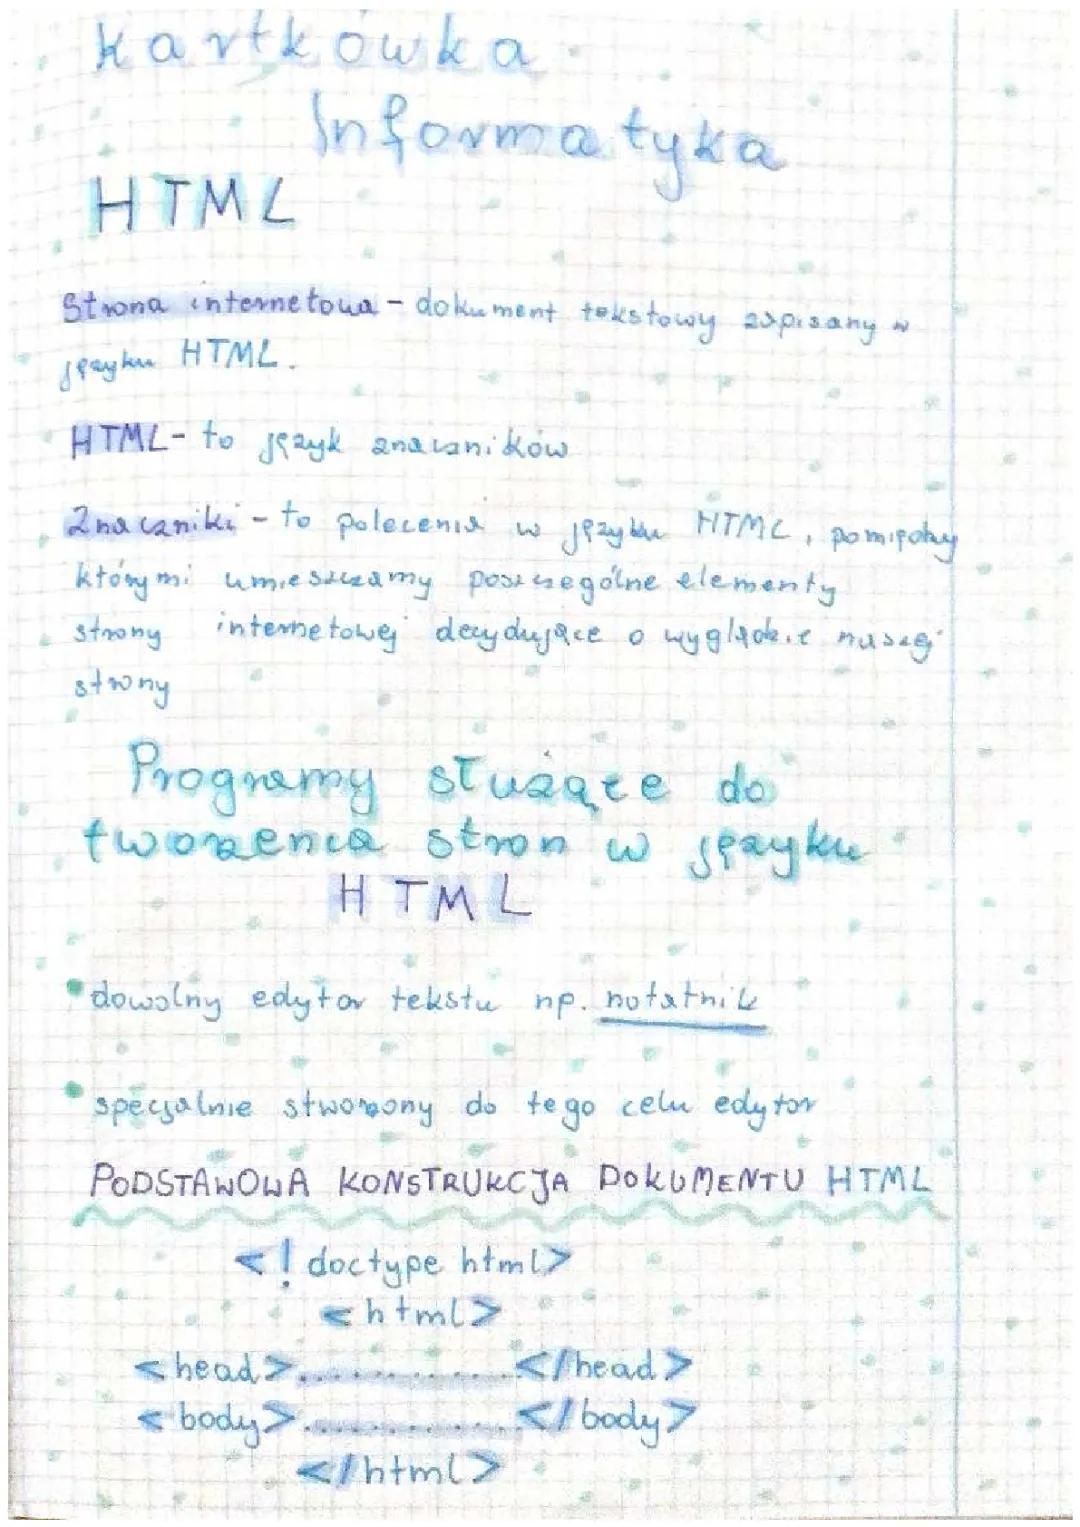 Kartkówka
Informatyka
HTML
Strona internetowa - dokument tekstowy zapisany w
języku HTML.
HTML - to język znaczników
Znaczniki - to polecenia w języku HTML, pomiędzy
którymi umieszczamy poszczególne elementy
strony internetowej decydujące o wyglądzie naszej
strony
Programy służące do
tworzenia stron w języku
HTML
• dowolny edytor tekstu np. notatnik
• specjalnie stworzony do tego celu edytor
PODSTAWOWA KONSTRUKCJA DOKUMENTU HTML
<! doctype html>
<html>
<head>............</head>
<body>............</body>
</html>